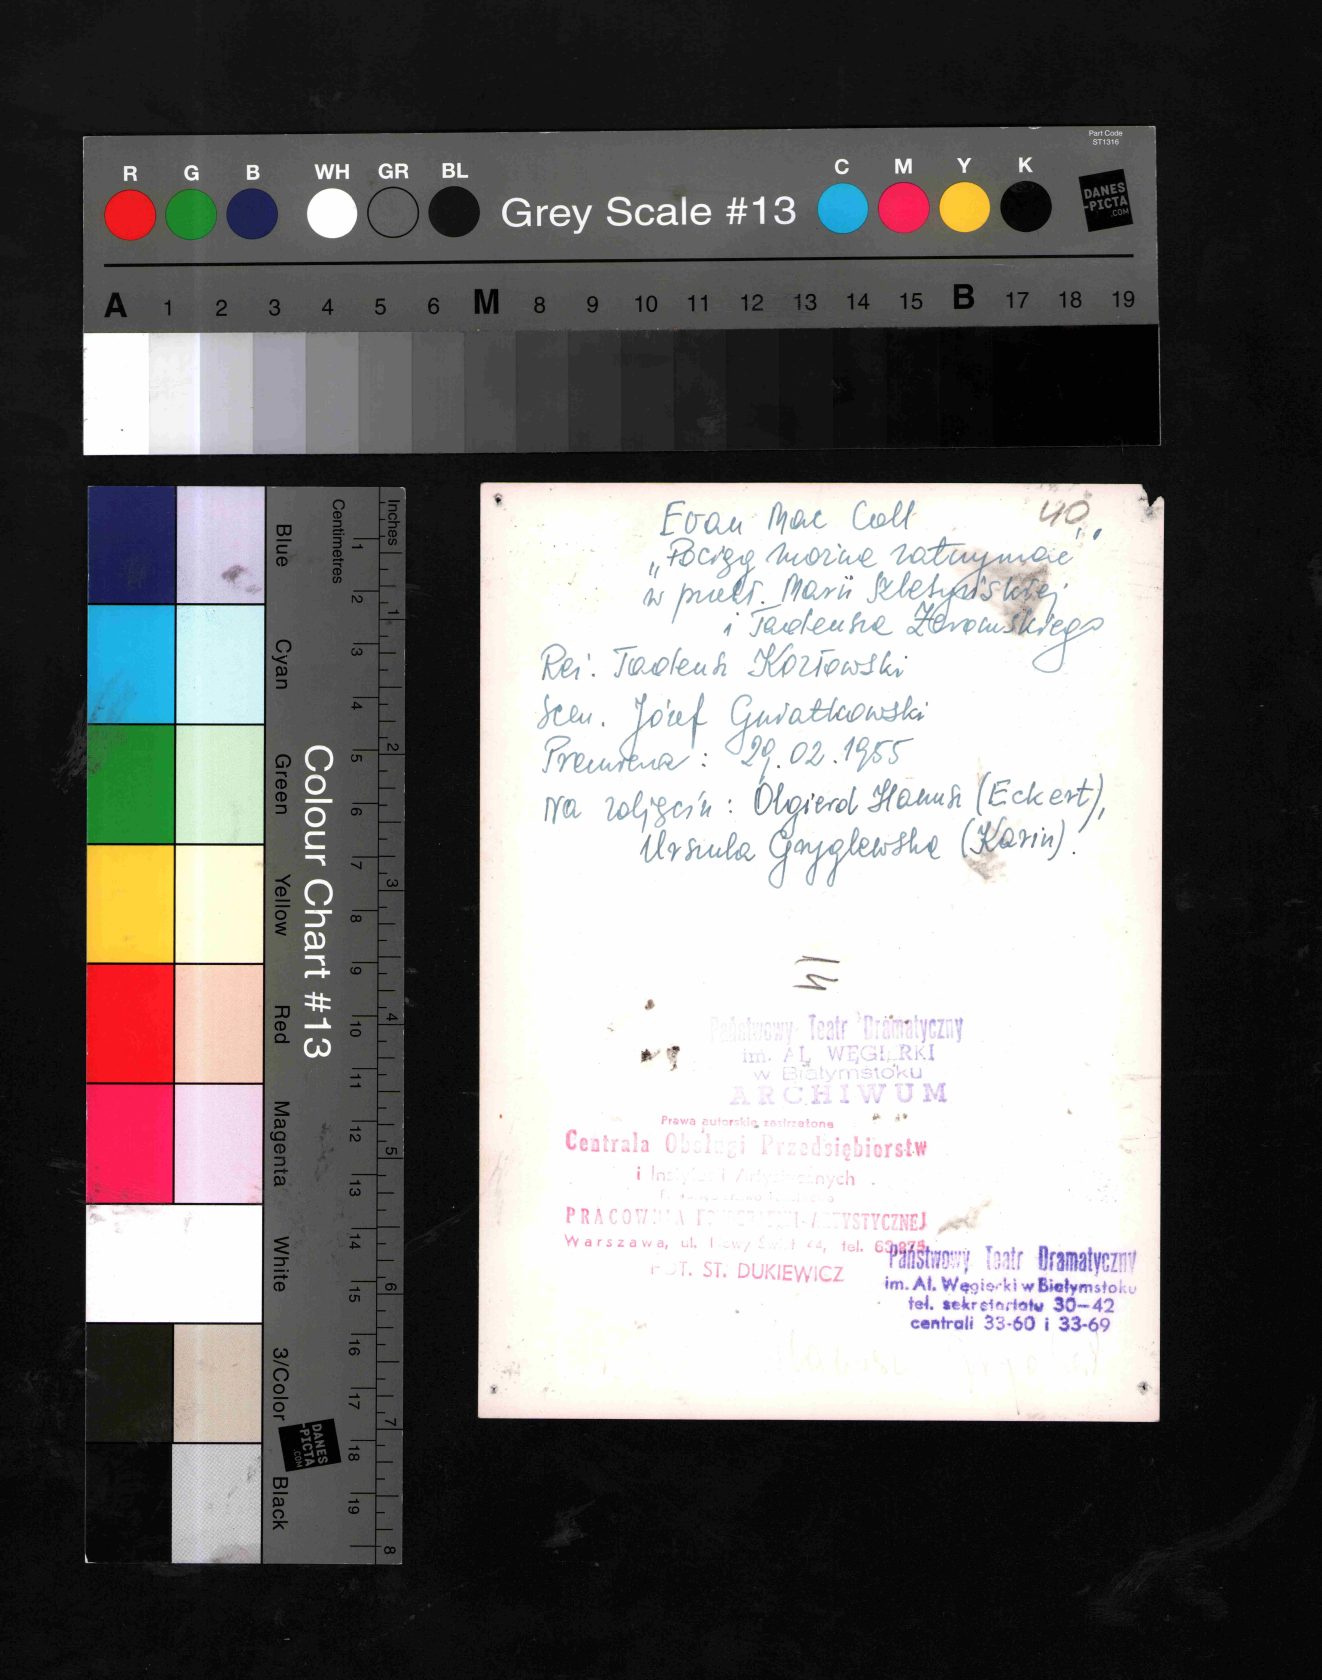 Part Code
ST1316
R G B WH GR BL Grey Scale #13 C M Y K
DANES
-PICTA
.COM
A 1 2 3 4 5 6 M 8 9 10 11 12 13 14 15 B 17 18 19
Colour Chart #13
Blue Cyan Green Yellow Red Magenta White 3/Color Black
Centimetres 1 2 3 4 5 6 7 8 9 10 11 12 13 14 15 16 17 18 19
Inches 1 2 3 4 5 6 7 8
DANES
-PICTA
.COM
40
Evan Mac Coll
„Pociąg można zatrzymać"
w przekł. Marii
i Tadeusza Żeromskiego
Reż. Tadeusz Kozłowski
Scen. Józef Gwiatkowski
Premiera: 29.02.1955
Na zdjęciu: Olgierd Hanus (Eckert),
Urszula Gryglewska (Karin).
Państwowy Teatr Dramatyczny
im. AL. WĘGIERKI
w Białymstoku
ARCHIWUM
Prawa autorskie zastrzeżone
Centrala Obsługi Przedsiębiorstw
i Instytucji Artystycznych
PRACOWNIA ARTYSTYCZNEJ
Warszawa, ul. Nowy Świat tel.
FOT. ST. DUKIEWICZ
Państwowy Teatr Dramatyczny
im. Al. Węgierki w Białymstoku
tel. sekretariatu 30-42
centrali 33-60 i 33-69